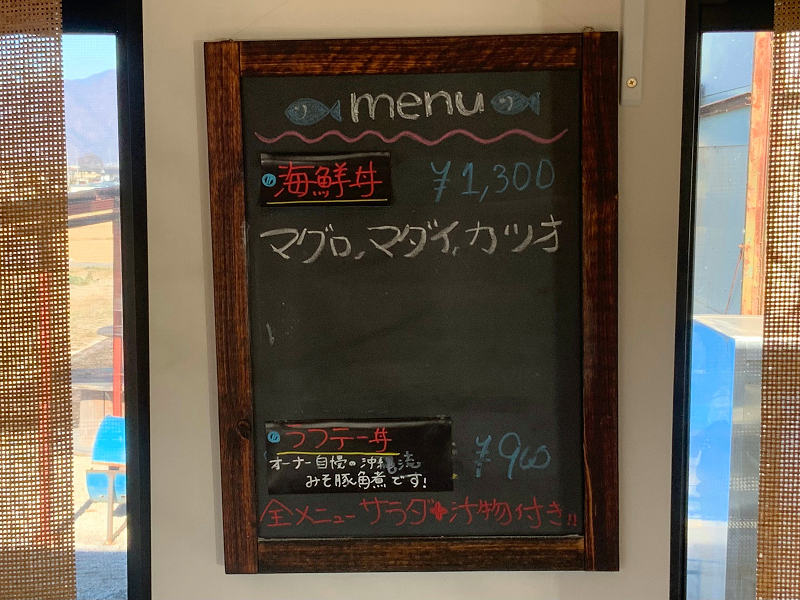 menu
海鮮丼 ¥1,300
マグロ、マダイ、カツオ
ラフテー丼 ¥900
オーナー自慢の沖縄流
みそ豚角煮です!
全メニューサラダ+汁物付き!!